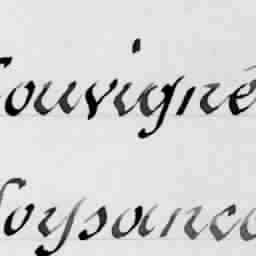 Souvigné
Soysance